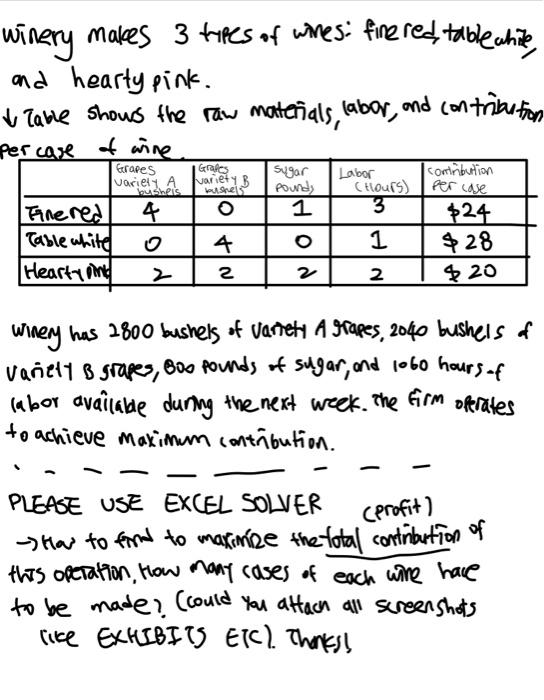 winery makes 3 types of wines: fine red, table white,
and hearty pink.
↓ Table shows the raw materials, labor, and contribution
per case of wine.
Grapes Variety A bushels | Grapes Variety B bushels | Sugar Pounds | Labor (Hours) | Contribution Per case
Fine red | 4 | 0 | 1 | 3 | $24
Table white | 0 | 4 | 0 | 1 | $28
Hearty pink | 2 | 2 | 2 | 2 | $20
Winery has 2800 bushels of variety A grapes, 2040 bushels of
variety B grapes, 800 pounds of sugar, and 1060 hours of
labor available during the next week. The firm operates
to achieve maximum contribution.
PLEASE USE EXCEL SOLVER (profit)
→ How to find to maximize the total contribution of
this operation, how many cases of each wine have
to be made? (could you attach all screenshots
like EXHIBITS ETC). Thanks!